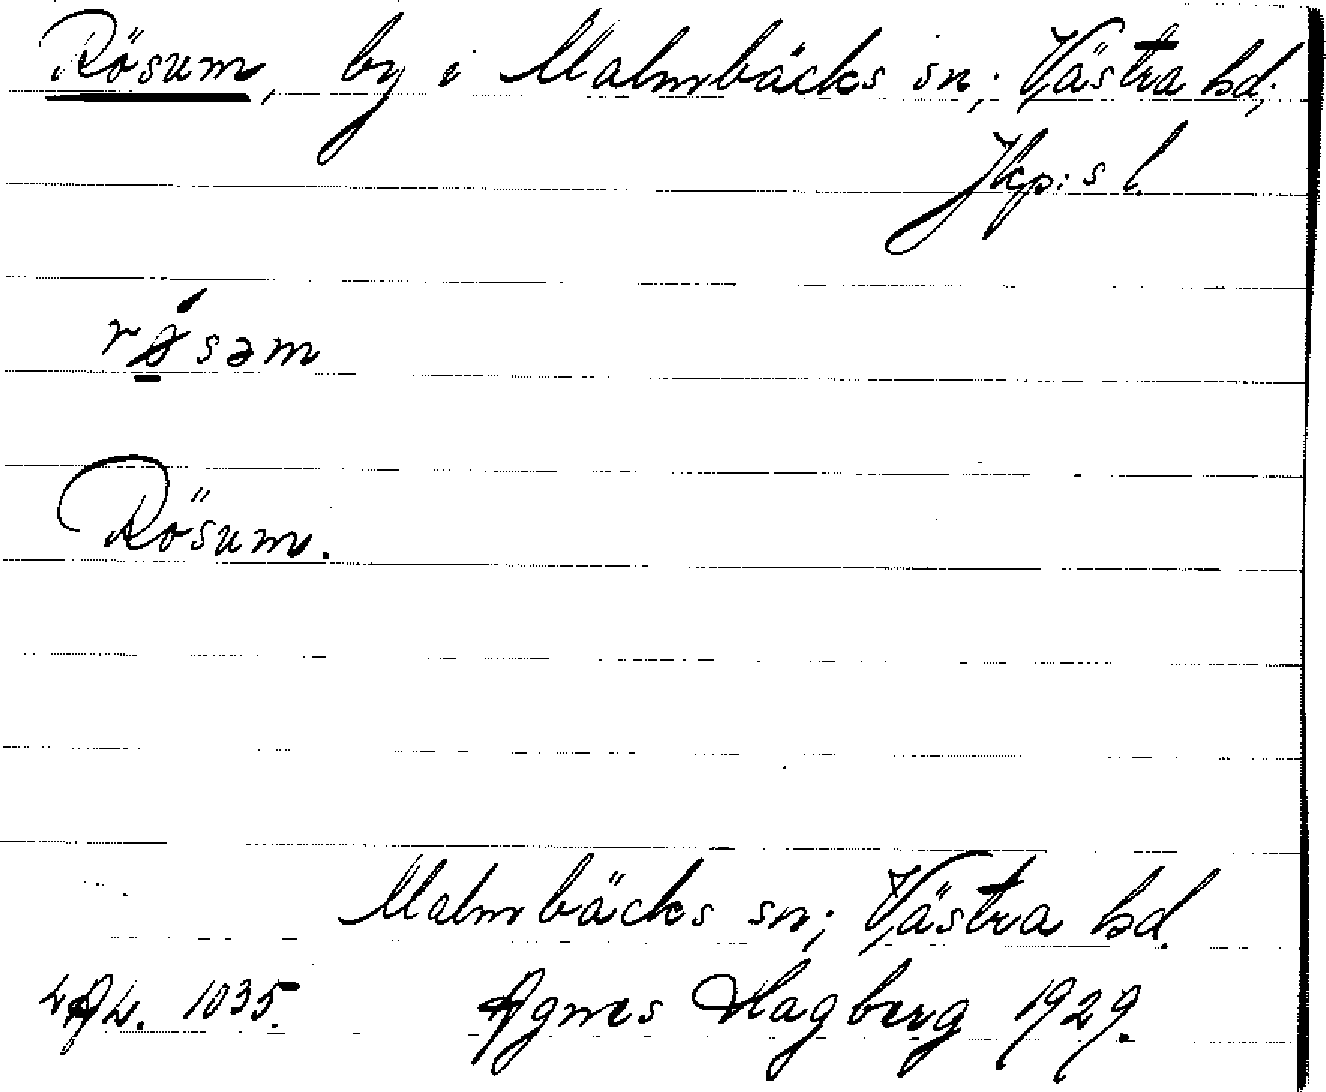 Rösum, by i Malmbäcks sn; Västra hd;
Jkp:s l.
rǿ̱səm
Rösum.
Malmbäcks sn; Västra hd.
1035. Agnes Hagberg 1929.